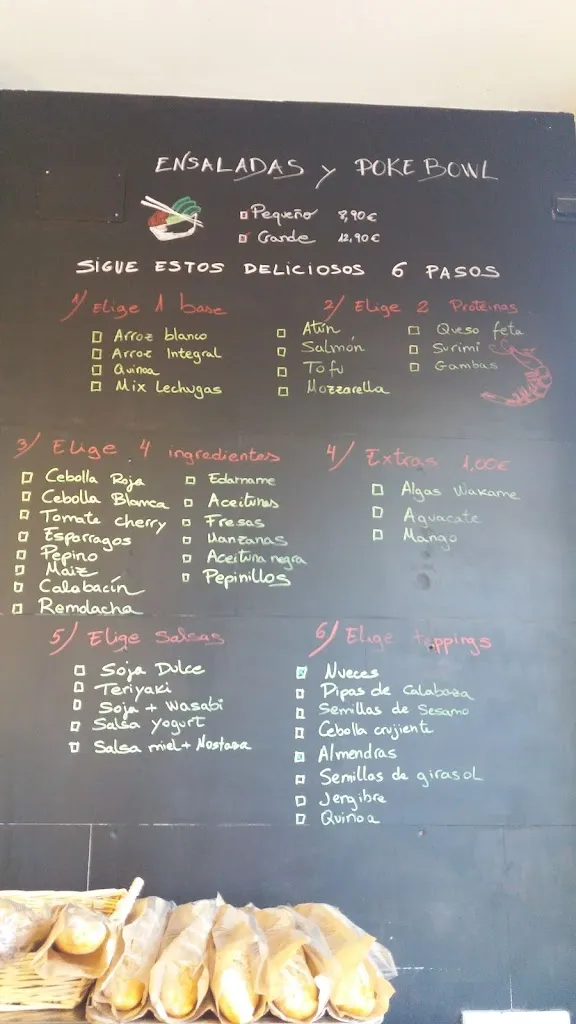 ENSALADAS y POKE BOWL
Pequeño 8,90€
Grande 12,90€
SIGUE ESTOS DELICIOSOS 6 PASOS
1/ Elige 1 base
Arroz blanco
Arroz Integral
Quinoa
Mix Lechugas
2/ Elige 2 Proteinas
Atún
Salmón
Tofu
Mozzarella
Queso feta
Surimi
Gambas
3/ Elige 4 ingredientes
Cebolla Roja
Cebolla Blanca
Tomate cherry
Esparragos
Pepino
Maiz
Calabacín
Remolacha
Edamame
Aceitunas
Fresas
Manzanas
Aceituna negra
Pepinillos
4/ Extras 1,00€
Algas Wakame
Aguacate
Mango
5/ Elige Salsas
Soja Dulce
Teriyaki
Soja + Wasabi
Salsa yogurt
Salsa miel + Mostaza
6/ Elige toppings
Nueces
Pipas de Calabaza
Semillas de Sesamo
Cebolla crujiente
Almendras
Semillas de girasol
Jengibre
Quinoa